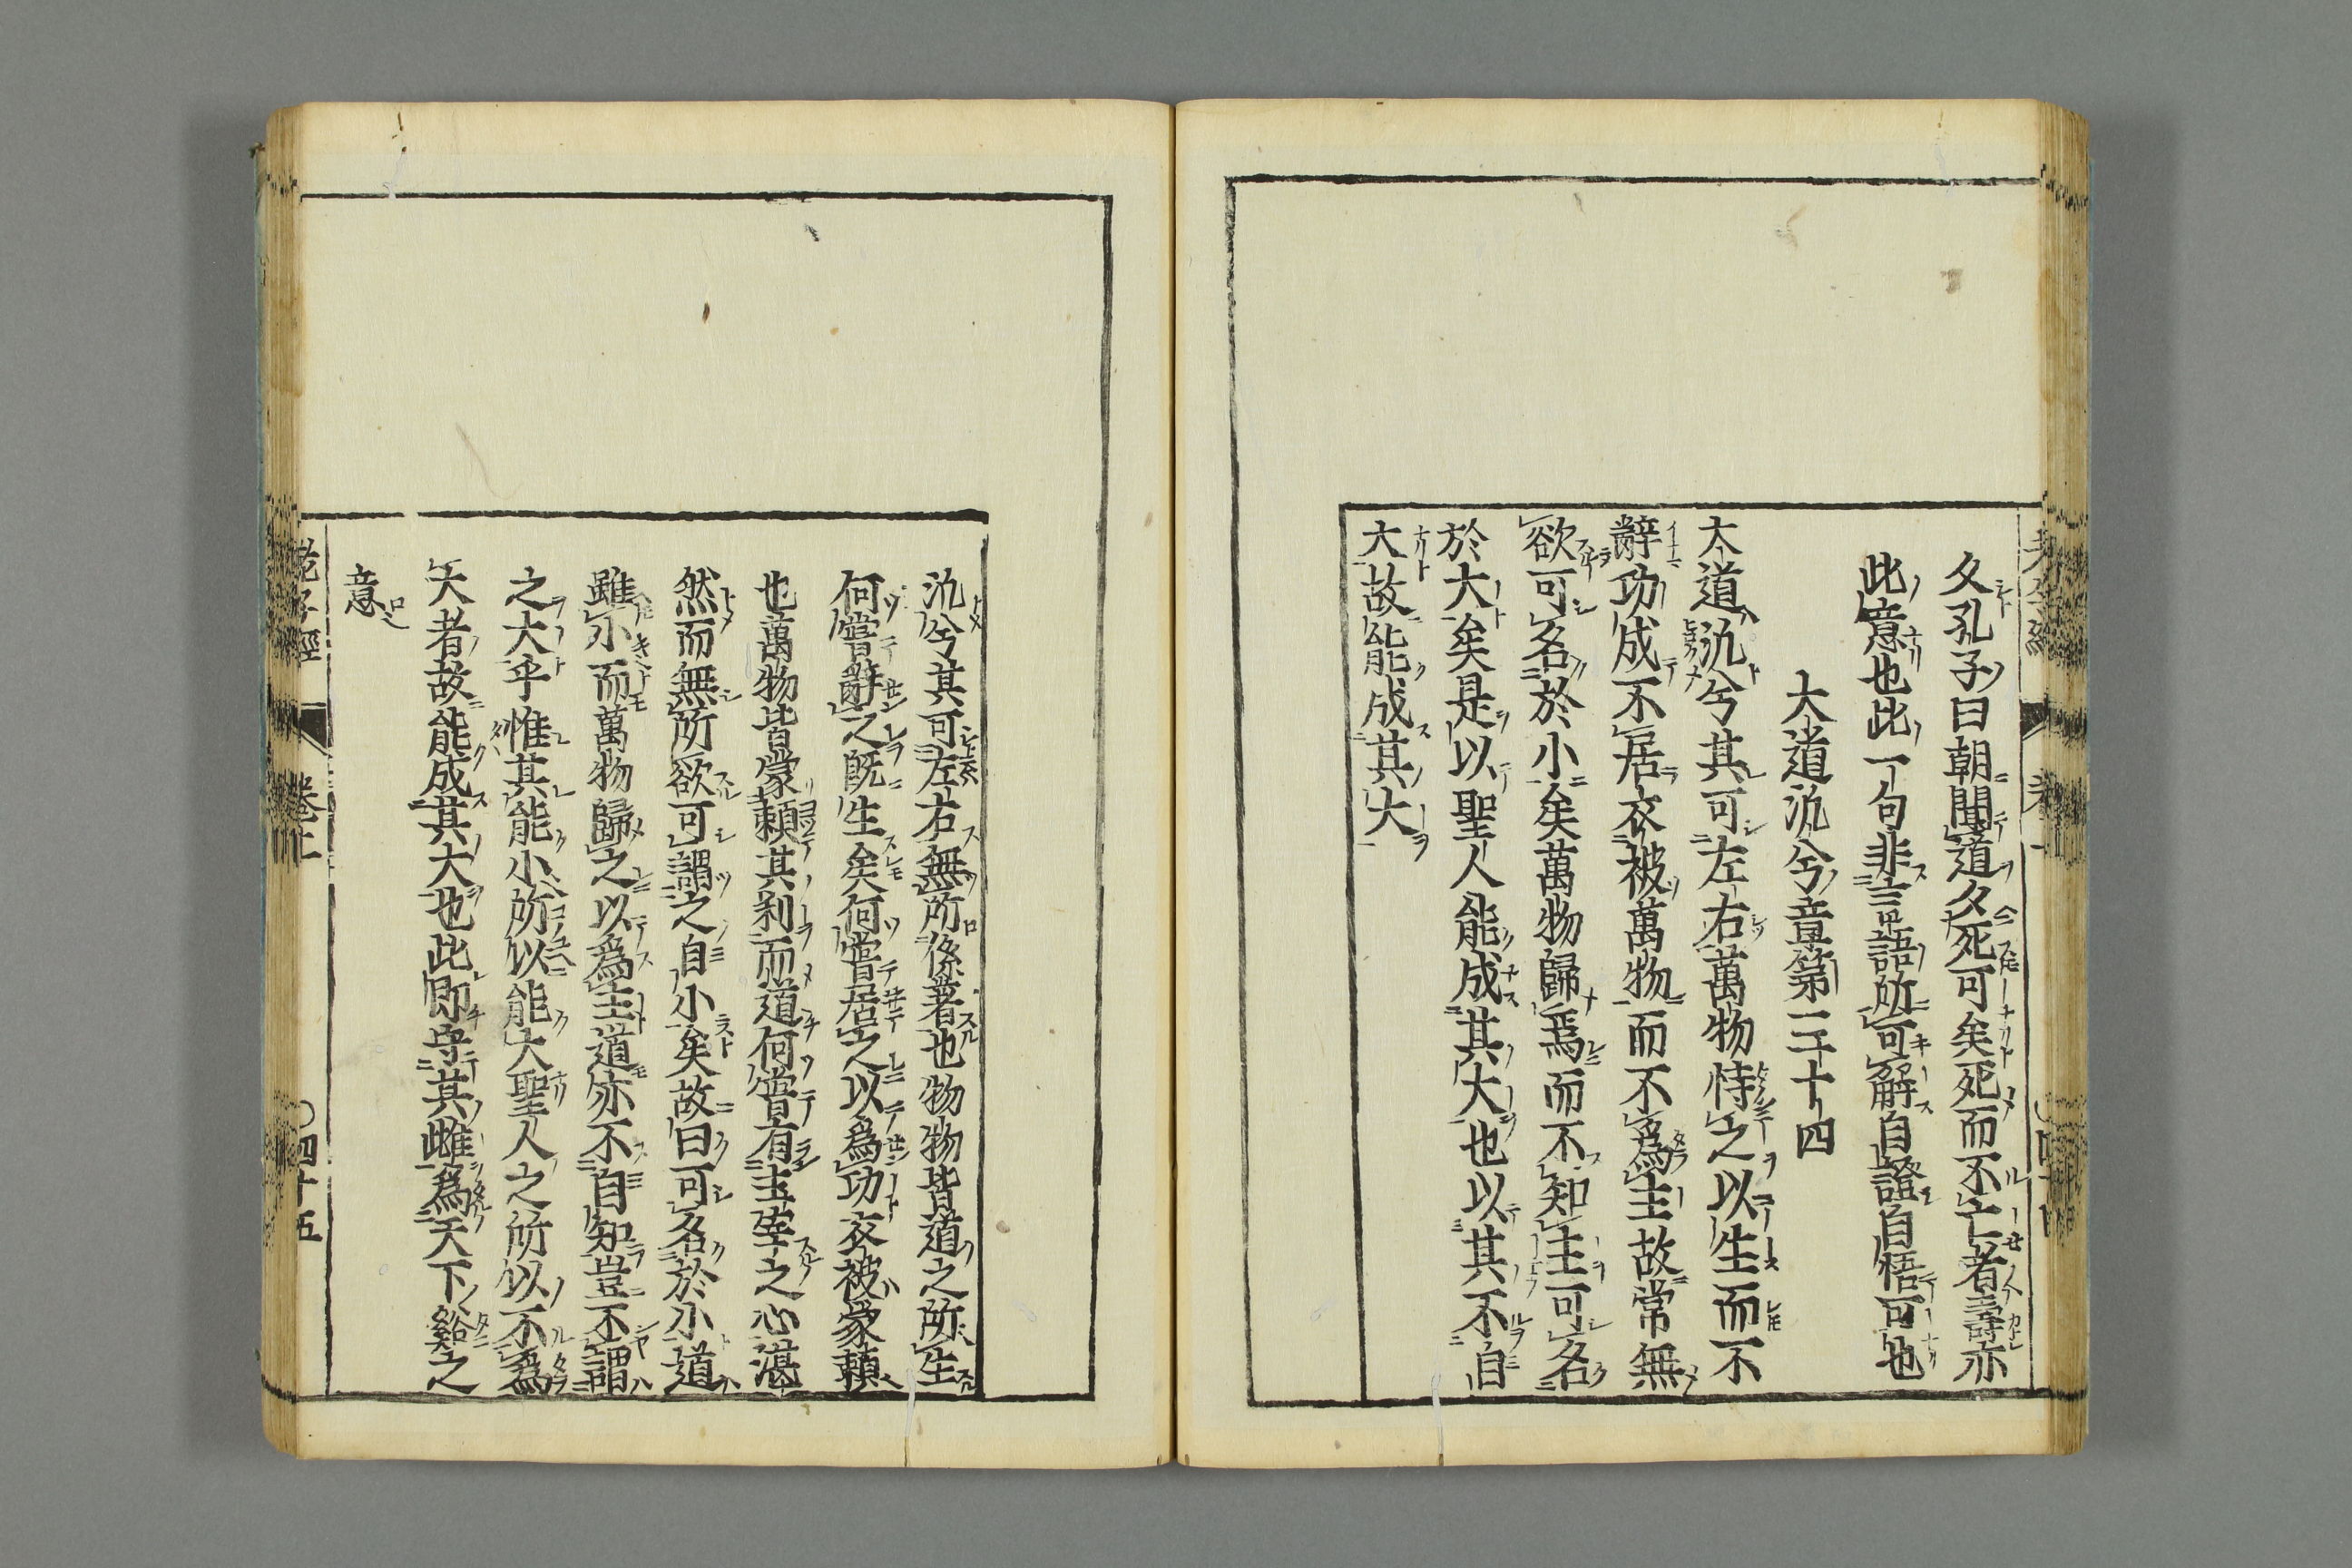 久孔子曰朝聞道夕死可矣死而不亡者壽亦
此意也此一句非言語所可解自證自悟可也
大道氾兮章第三十四
大道氾兮其可左右萬物恃之以生而不
辭功成不居衣被萬物而不爲主故常無
欲可名於小矣萬物歸焉而不知主可名
於大矣是以聖人能成其大也以其不自
大故能成其大
氾兮其可左右無所係著也物物皆道之所生
何嘗辭之既生矣何嘗居之以爲功衣被蒙賴
也萬物皆蒙賴其利而道何嘗有主宰之心湛
然而無所欲可謂之自小矣故曰可名於小道
雖小而萬物歸之以爲主道亦不自知豈不謂
之大乎惟其能小所以能大聖人之所以不爲
大者故能成其大也此即守其雌爲天下谿之
意
老子經 卷上 ○四十五